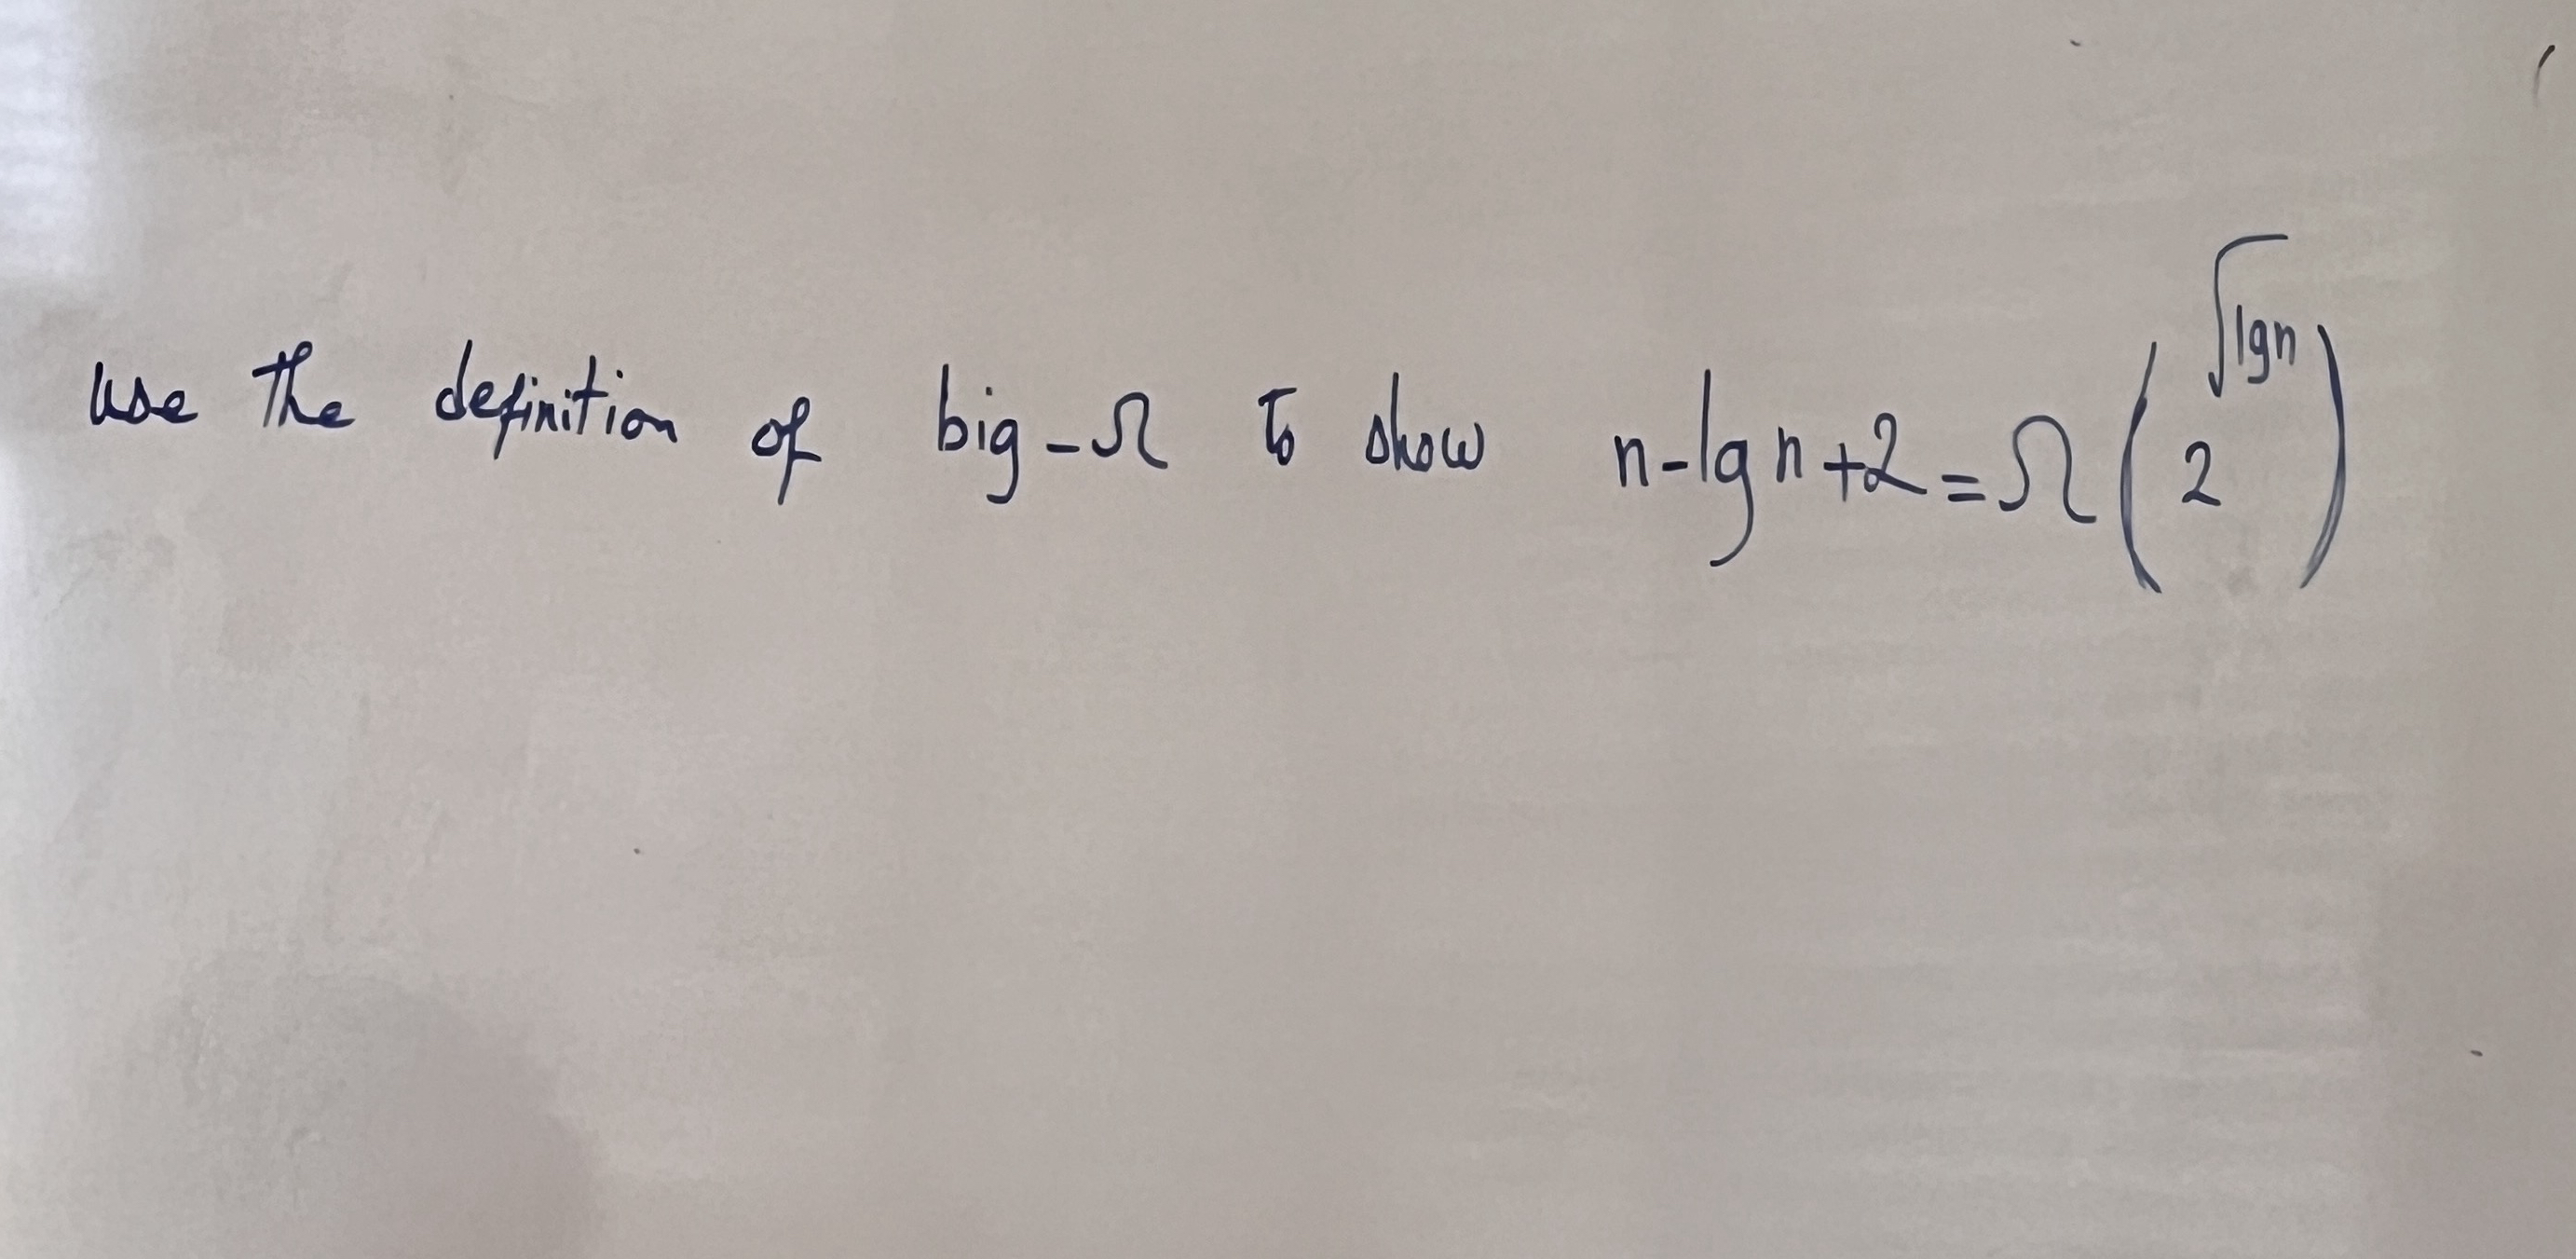 use the definition of big-Ω to show n-lgn+2=Ω(2^√lgn)